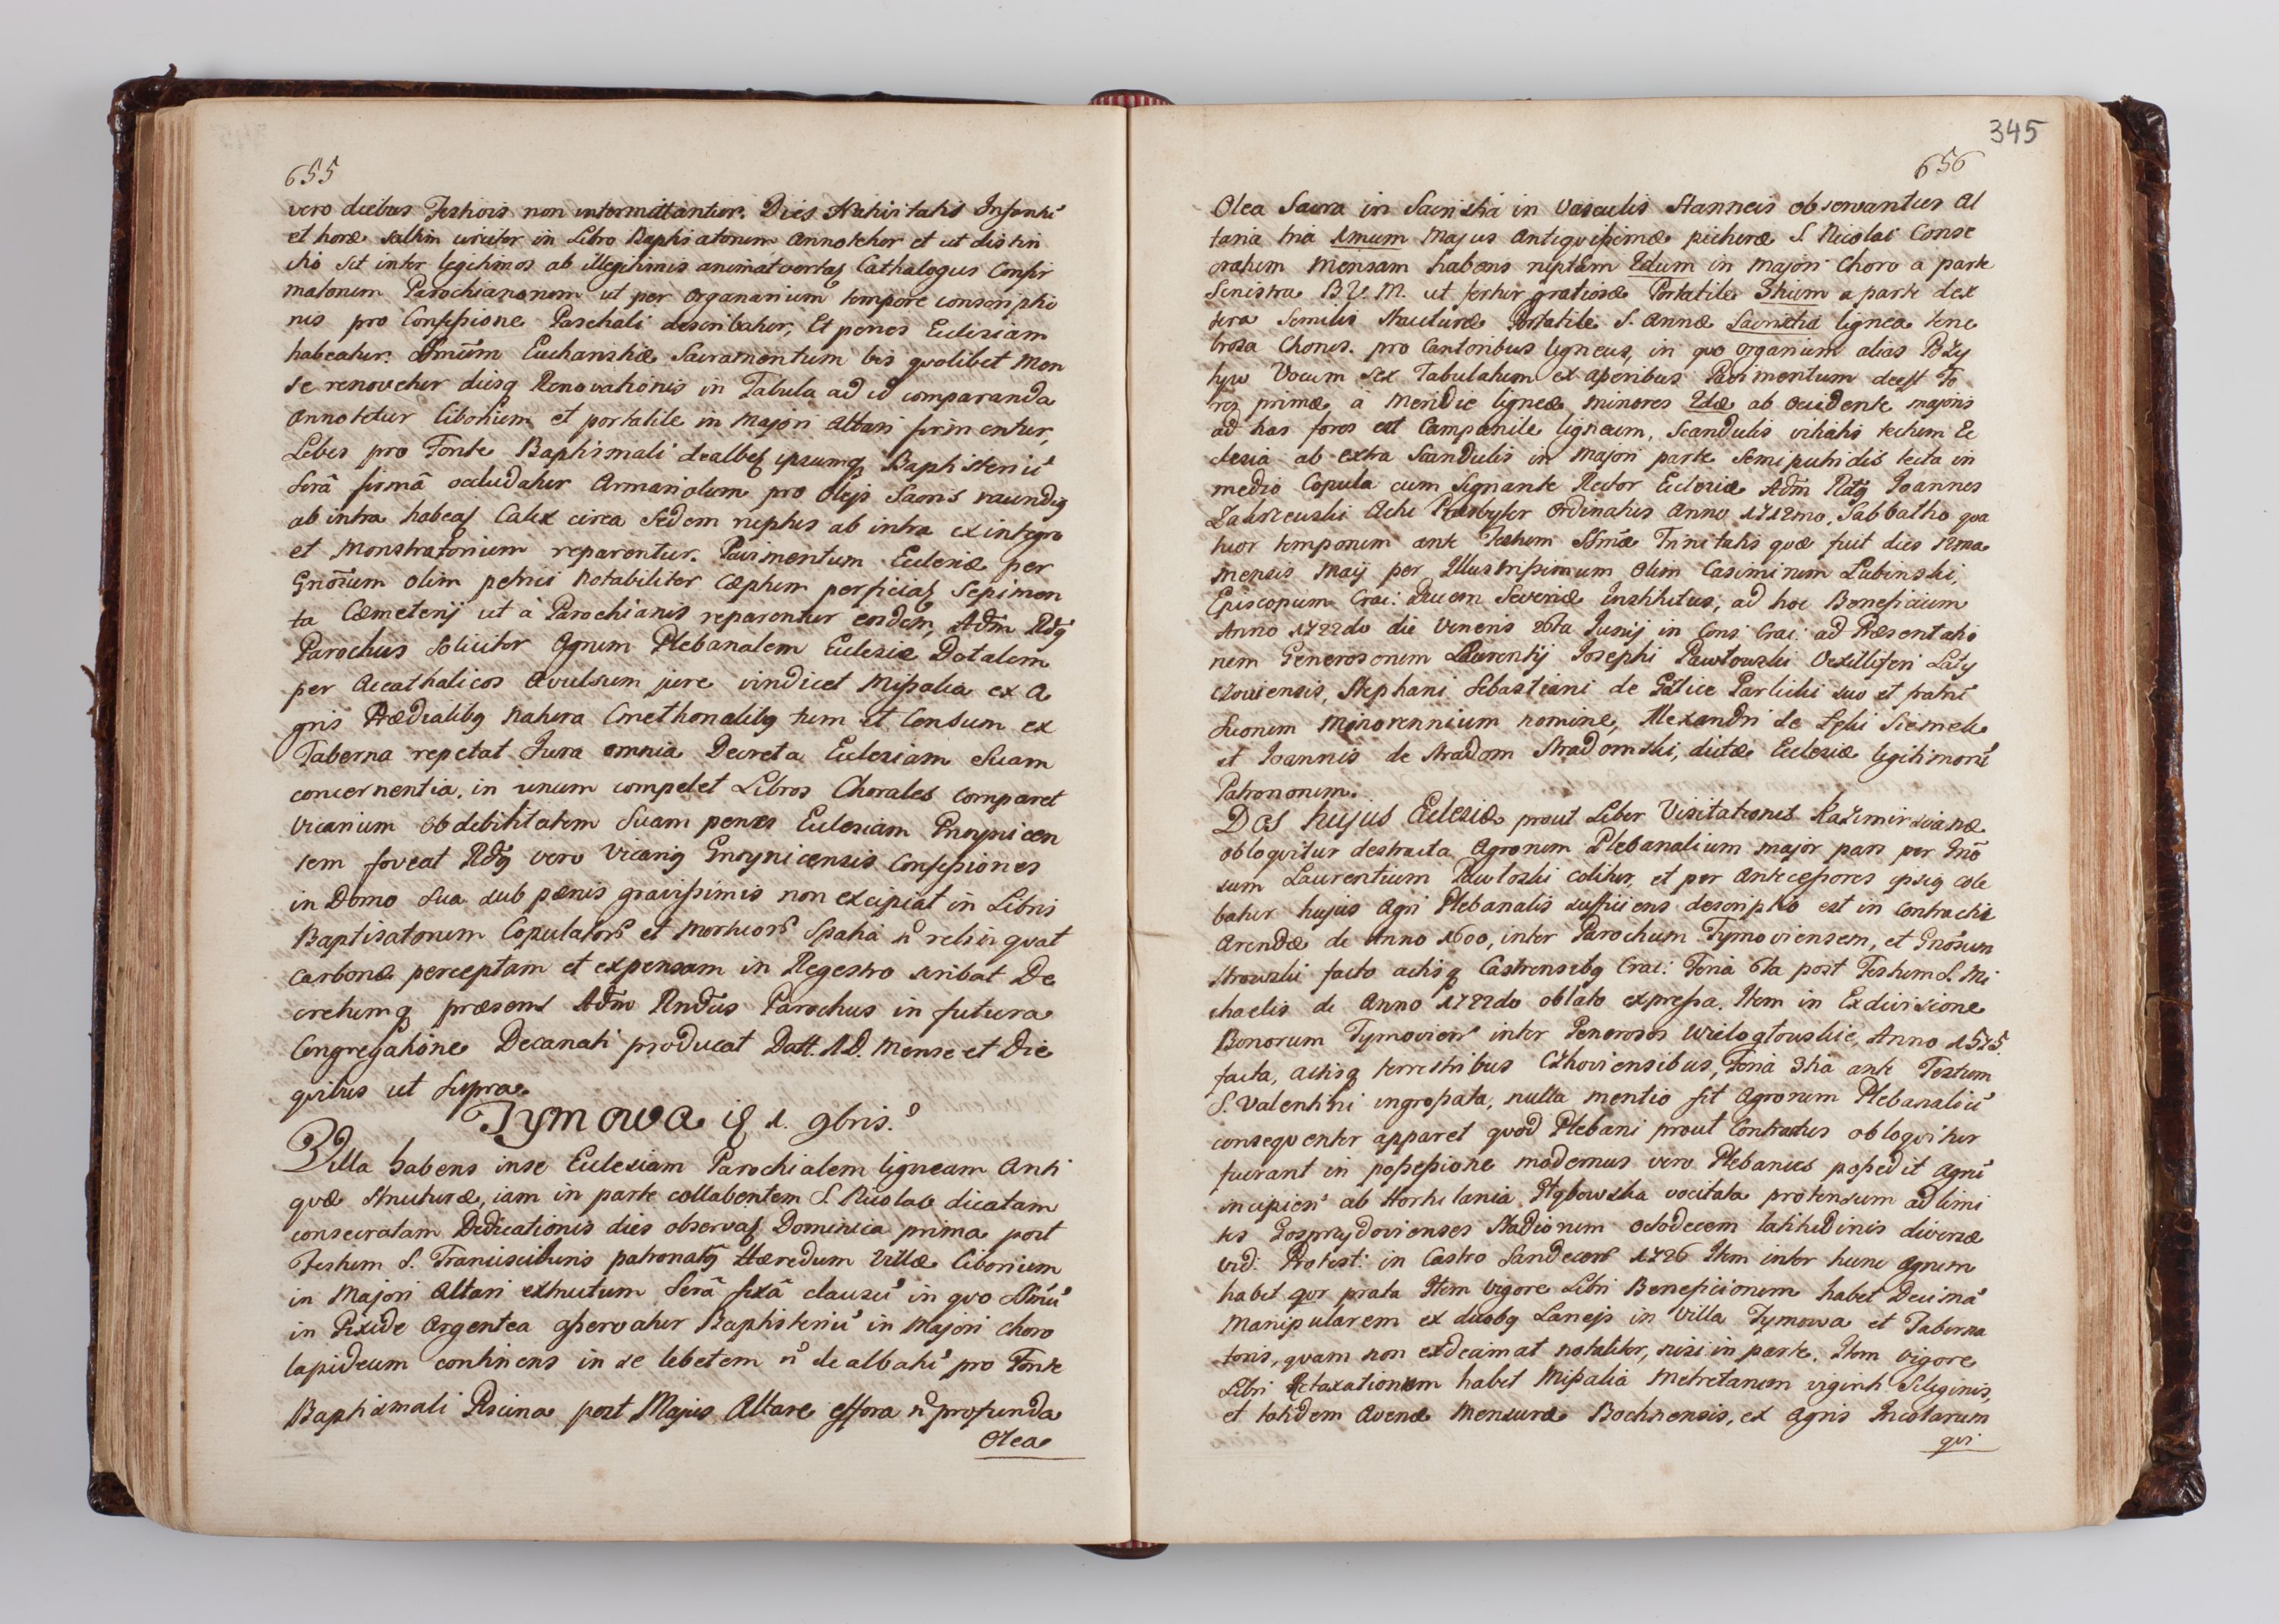 655
vero diebus Festivis non intermittantur. Dies Nativitatis Infanti
et horæ saltim circiter in Libro Baptisatorum Annotetur et ut distin
ctio sit inter legitimos ab illegitimis animadvertaꝭ Cathalogus Confir
matorum Parochianorum ut per Organarium tempore conscriptio
nis pro Confessione Paschali describatur, Et penes Ecclesiam
habeatur. Ssmūm Eucharistiæ Sacramentum bis quolibet Men
se renovetur diesq Renovationis in Tabula ad id comparanda
Annotetur Ciborium et portatile in Majori Altari firmentur,
Lebes pro Fonte Baptismali dealbeꝭ ipsumq Baptisteriū
Serâ firmâ occludatur Armariolum pro Olejs Sacris mundiꝰ
ab intra habeaꝭ Calix circa Sedem ruptus ab intra ex integro
et Monstratorium reparentur. Pavimentum Ecclesiæ per
Gnōsum olim petrici Notabiliter Cæptum perficiaꝭ Sepimen
ta Cæmeterij ut à Parochianis reparentur eadem, Adm̄ Rdꝰ
Parochus Soliciter Agrum Plebanalem Ecclesiæ Dotalem
per Accatholicos Avulsum jure vindicet Missalia ex A
gris Prædialibꝰ Natura Cmethonalibꝰ tum et Censum ex
Taberna repetat Jura omnia Decreta Ecclesiam Suam
concernentia in unum compelet Libros Chorales Comparet
Vicarium Ob debilitatem Suam penes Ecclesiam Gnoynicen
sem foveat Rdꝰ vero Vicariꝰ Gnoynicensis Confessiones
in Domo Sua sub pænis gravissimis non excipiat in Libris
Baptisatorum Copulator̄ et Mortuor̄ Spatia n̄ relinquat
Carbonæ perceptam et expensam in Regestro scribat De
cretumq præsens Adm̄ Rndūs Parochus in futura
Congregatione Decanali producat Datt. A D. Mense et Die
quibus ut Supra.
Tymowa iꝭ 1. 9bris.
Villa habens in se Ecclesiam Parochialem ligneam Anti
quæ Structuræ, iam in parte collabentem S. Nicolao dicatam
consecratam Dedicationis dies observaꝭ Dominica prima post
Festum S. Francisci Iuris patronatꝰ Hæredum Villæ Ciborium
in Majori Altari extructum Serâ fixâ clausū in quo Ssmū
in Pixide Argentea asservatur Baptisteriū in Majori Choro
lapideum continens in se lebetem n̄ dealbatū pro Fonte
Baptismali Piscina post Majus Altare effora n̄ profunda
Olea
345
656
Olea Sacra in Sacristia in Vasculis Stanneis observantur Al
taria tria 1mum Majus Antiquissimæ picturæ S. Nicolai Conse
cratum Mensam habens ruptam 2dum in Majori Choro a parte
Sinistra B.V.M. ut fertur gratiosæ Portatile 3tium a parte dex
tera Similis Structuræ Portatile S. Annæ Sacristia lignea tene
brosa Chorus pro Cantoribus ligneus, in quo Organum alias Pozy
tyw Vocum Sex Tabulatum ex Asseribus Pavimentum deest Fo
res primæ a Meridie ligneæ minores 2dæ ab Occidente majoris
ad has fores est Campanile ligneum, Scandulis vitiatis tectum Ec
clesia ab extra Scandulis in Majori parte Semiputridis tecta in
medio Copula cum Signante Rector Ecclesiæ Adm̄ Rdꝰ Joannes
Presbyter Ordinatus Anno 1712mo, Sabbatho qua
tuor temporum ante Festum SSmæ Trinitatis quæ fuit dies
mensis Maij per Illustrissimum Olim Casimirum Łubinski,
Episcopum Crac: Ducem Severiæ Institutus, ad hoc Beneficium
Anno 1722do die Veneris 26ta Junij in Cons: Crac: ad Præsentatio
nem Generosorum Laurentij Josephi Pawłowski Vexilliferi Laty
czoviensis, Stephani Sebastiani de Gatice suo et fratrū
Suorum Minorennium nomine, Alexandri de Siemek
et Joannis de Stradom Stradomski, dictæ Ecclesiæ legitimorū
Patronorum.
Dos hujus Ecclesiæ prout Liber Visitationis Kazimirscianæ
obloquitur destracta Agrorum Plebanalium major pars per Gnō
sum Laurentium Pawłoski colitur, et per Antecessores ipsiꝰ cole
batur hujus Agri Plebanalis sufficiens descriptio est in Contractu
Arendæ de Anno 1600, inter Parochum Tymoviensem, et Gnōsum
Strowski facto actisq Castrensibꝰ Crac: Feria 6ta post Festum S. Mi
chaelis de Anno 1722do oblato expressa. Item in Exdivisione
Bonorum Tymovien̄ inter Generosos Wielogłowskie, Anno 1575.
facta, actisq terrestribus Czchoviensibus, Feria 3tia ante Festum
S. Valentini ingrossata, nulla mentio fit Agrorum Plebanaliū
consequenter apparet quod Plebani prout Contractus obloquitur
fuerant in possessione modernus vero Plebanus possedit Agrū
incipien̄ ab Hortulania vocitata protensum ad limi
tes Gosprzydovienses Stadiorum octodecem latitudinis diversæ
vid: Protest: in Castro Sandecen̄ 1726 Item inter hunc Agrum
habet qor prata Item vigore Libri Beneficiorum habet Decimā
Manipularem ex duobꝰ Laneis in Villa Tymowa et Taberna
toris, quam non exdecimat notaliter, nisi in parte. Item vigore
Libri Retaxationum habet Missalia Metretarum viginti Siliginis,
et totidem Avenæ Mensuræ Bochnensis, ex Agris Incolarum
qui